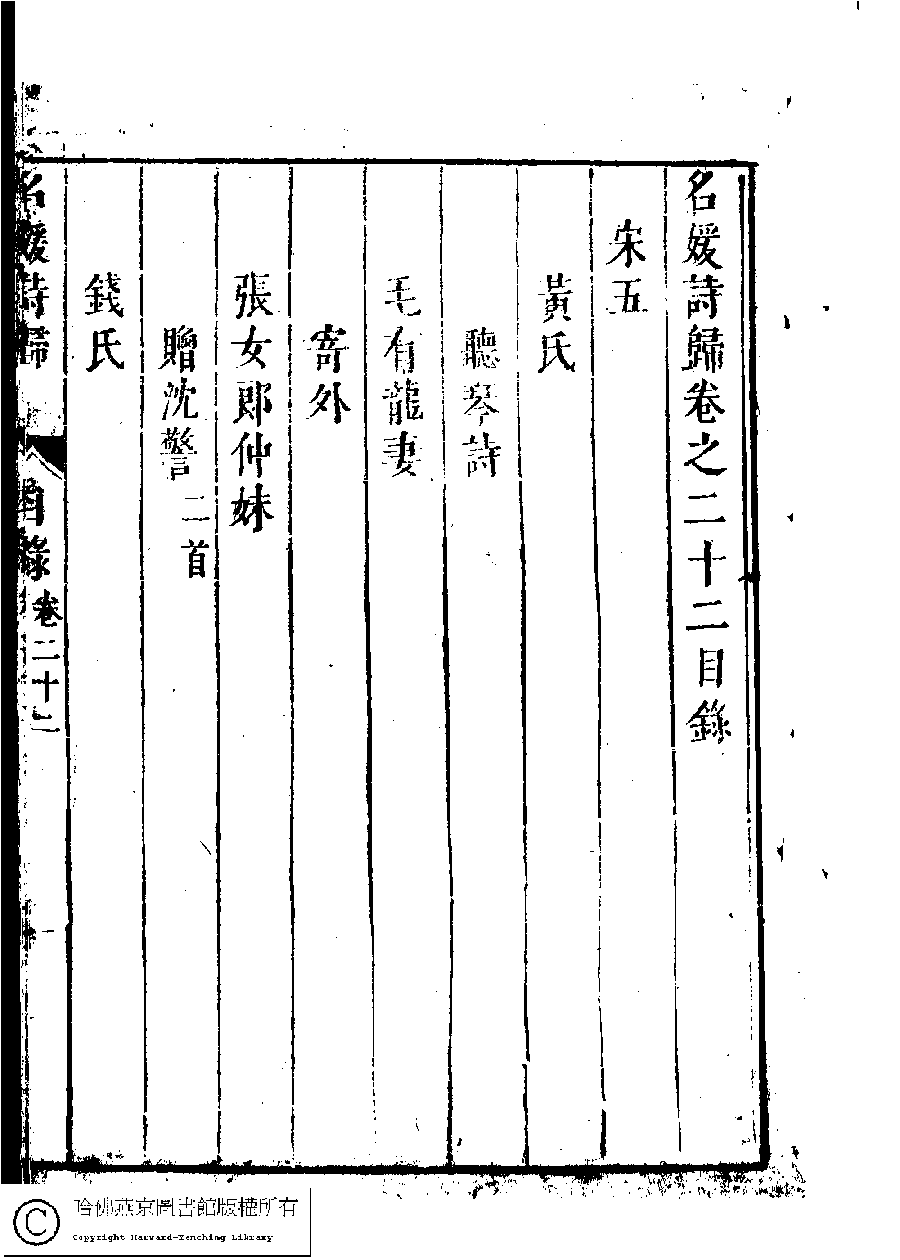 名媛詩歸卷之二十二目錄
宋五
黃氏
聽琴詩
毛有龍妻
寄外
張女郎仲妹
贈沈警二首
錢氏
名媛詩歸 目錄 卷二十二
哈佛燕京圖書館版權所有
Copyright Harvard-Yenching Library